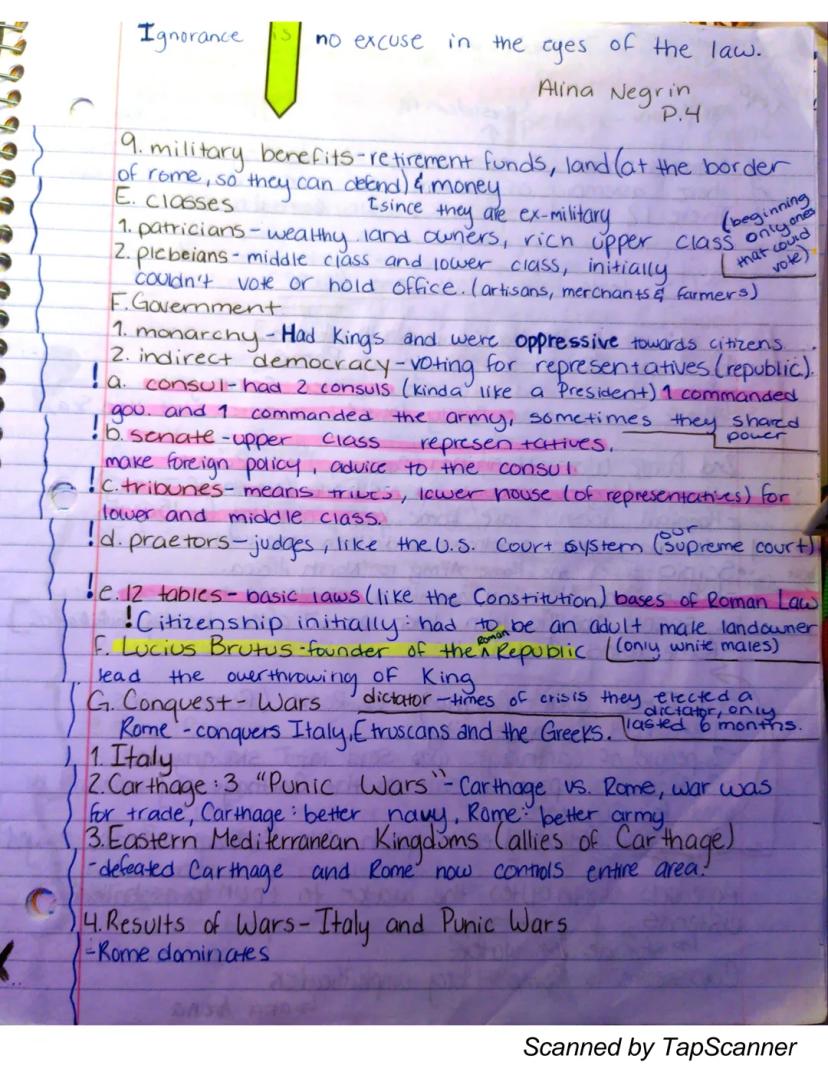 Ignorance is no excuse in the eyes of the law.
Alina Negrin
P.4
9. military benefits - retirement funds, land (at the border
of rome, so they can defend) & money
E. classes
since they are ex-military
(beginning
only ones
that could
vote)
1. patricians - wealthy land owners, rich upper class
2. plebeians - middle class and lower class, initially
couldn't vote or hold office. (artisans, merchants & farmers)
F. Government
1. monarchy - Had Kings and were oppressive towards citizens.
2. indirect democracy - voting for representatives (republic).
! a. consul - had 2 consuls (kinda like a President) 1 commanded
gov. and 1 commanded the army, sometimes they shared
power
! b. senate - upper class representatives,
make foreign policy, advice to the consul
! c. tribunes - means tribes, lower house (of representatives) for
lower and middle class.
! d. praetors - judges, like the U.S. Court system (our supreme court)
! e. 12 tables - basic laws (like the Constitution) bases of Roman Law
! Citizenship initially: had to be an adult male landowner
(only white males)
f. Lucius Brutus - founder of the Roman Republic
lead the overthrowing of King
G. Conquest - Wars
dictator - times of crisis they elected a
dictator, only
lasted 6 months.
Rome - conquers Italy, Etruscans and the Greeks.
1. Italy
2. Carthage: 3 "Punic Wars" - Carthage vs. Rome, war was
for trade, Carthage: better navy, Rome: better army
3. Eastern Mediterranean Kingdoms (allies of Carthage)
- defeated Carthage and Rome now controls entire area.
4. Results of Wars - Italy and Punic Wars
- Rome dominates
Scanned by TapScanner